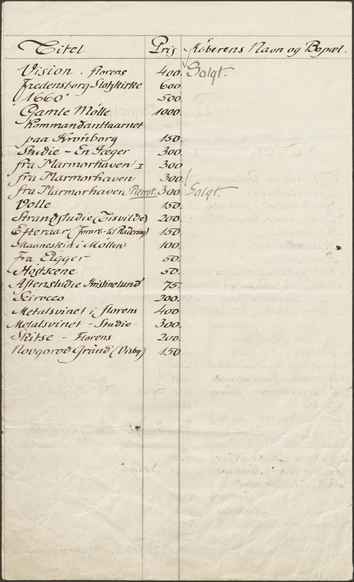 Titel Pris Köberens Navn og Bopæl.
Vision. florens 400. Solgt.
Fredensborg Slotskirke 600
(1660) 500
Gamle Mölle 1000.
Kommandantuarnet
paa Kronborg 150.
Studie - En Jæger 300
fra Marmorhaven I 300
fra Marmorhaven 300
fra Marmorhaven 300. Solgt.
Volle 150
Strandstudie (Tisvilde) 200
Efteraar ( 150.
i Möllen 100.
Fra Rigger 50
Höstscene 50.
Aftenstudie Kristinelund 75.
Scirocco 200.
Metalsvinet i florens 400.
Metalsvinet - Studie 300.
Skitse - Florens 200.
Novgorod Gränd (Visby) 150